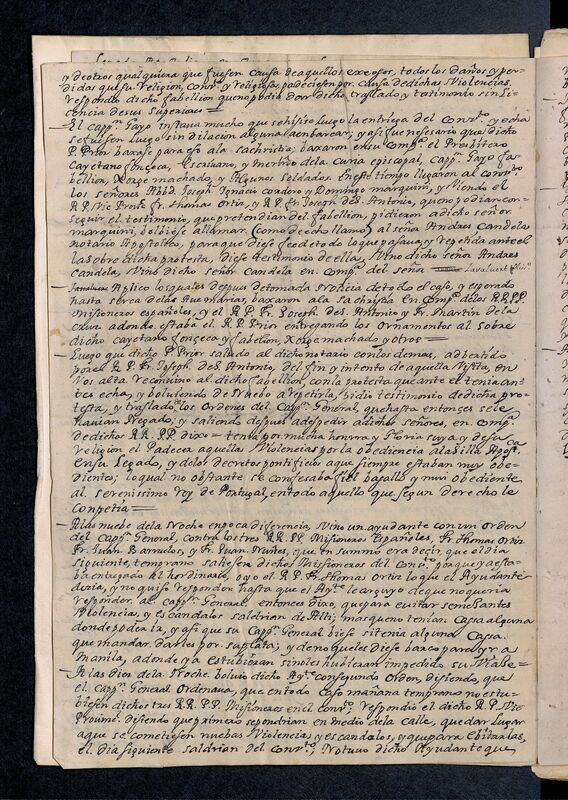 y deotros qualquiera que fuesen causa deaquellos exçesos, todos los daños y per-
didas quesu Religion, conv.to y Religiosos padeciesen por causa dedichas Violencias,
respondio dicho fabellion quenopodia dar dicho traslado y testimonio sin li-
cencia desus superiores
El capp.n Gayo instaua mucho que sehisiese luego la entrega del Conv.to, y echa
sefuesen luego sin dilacion alguna aenbarcar; y asi fue nesesario que dicho
P. Prior baxase para eso ala sachristia; baxaron ensu Comp.a el Presbitero
Cayetano fonçeca, Escriuano, y merino dela Curia episcopal, capp.n Gayo fa-
bellion, Xorge machado, y Algunos soldados. Eneste tiempo llegaron al conv.to
los señores Abbd. Joseph Ignacio Cordero y Domingo marquini, y Viendo el
R.P. Vic. Prov.l fr. thomas Ortiz, y R.P. fr. Joseph de S. Antonio, que no podian con-
seguir el testimonio, que pretendian del fabellion, pidieron adicho señor
marquini, dolbiese allamar (como deecho llamo) al seña Andres Candela
notario Apostolico, para que diese feedetodo loque pasaua, y repetida anteel
las obre dicha protesta, diese testimonio de ella, Vino dicho señor Andres
Candela, Vino dicho señor candela en Comp.a del seña Lavaluere
Aplico los quales despues detomada noticia detodo el caso, y esperado
hasta serca delas Aue marias, baxaron ala sachristia en comp.a delos RR.PP.
Misioneros españoles, y el R.P. Fr. Joseph de S. Antonio y fr. Martin dela
Cauz adonde estaba el R.P. Prior entregando los Ornamentos al sobre
dicho cayetano fonçeco y fabelion, Xorge machado y otros
Luego que dicho P. Prior saludo al dicho notario con los demas, aduertido
por el R.P. Fr. Joseph de S. Antonio, del fin y intento de aquella Visita, en
Vos alta reconuino al dicho fabellion, conla protesta que ante el tenia an-
tes echa, y boluiendo de nuebo a repetirla, pidio testimonio dedicha pro-
testa, y traslado los Ordenes del Capp.n General, quehasta entonçes sele
hauian Negado, y saliendo despues adespedir adichos señores, en comp.a
dedichos RR. PP. dixo = tenia por mucha honrra y Gloria suya y desu
religion el Padecer aquellas Violencias por la obediencia ala silla Apost.ca
ensu Legado, y delos decretos pontificios aque siempre estaban muy obe-
dientes; loqual no obstante se confesaba fiel basallo y mui obediente
al serenissimo rey de Portugal, entodo aquello que segun derecho le
Conpetia
Alas nuebe dela Noche enpoca diferencia, Vino un ayudante conun orden
del Capp.n General, contra los tres RR. PP. Misioneros Españoles, Fr. thomas Ortiz
Fr. Juan Barruelos, y Fr. Juan Nuñes, que en summa era decir, que el dia
siguiente, temprano saliesen dichos Missioneros del conv.to porque ya esta-
ba entregado al hordinario, oyo el R.P. Fr. thomas Ortiz loque el Ayudante
desia, y no quiso responder hasta que el Ay.te le arguyo de que no queria
responder al capp.n General, entonces dixo, que para euitar semejantes
Violencias, y escandalos saldrian de Alli; mas queno tenian Casa alguna
donde poder ir, y asi que su Capp.n General biese si tenia alguna Casa
que mandar darles por su plata; y denoque les diese barco para yr a
Manila, adonde ya estubieran sinoles hubieran impedido su Viaje
Alas dies dela Noche boluio dicho Ay.te consegundo Orden, disiendo, que
el capp.n General Ordenaua, que entodo caso mañana temprano no estu-
biesen dichos tres RR.PP. Misioneros enel conv.to respondio el dicho R.P. Vic.
Prouinc. disiendo que primero sepondrian en medio dela calle, quedar lugar
aque se cometiesen nuebas Violencias, y escandalos, y quepara ebitarlas,
el dia siguiente saldrian del conv.to, Notuvo dicho Ayudante que